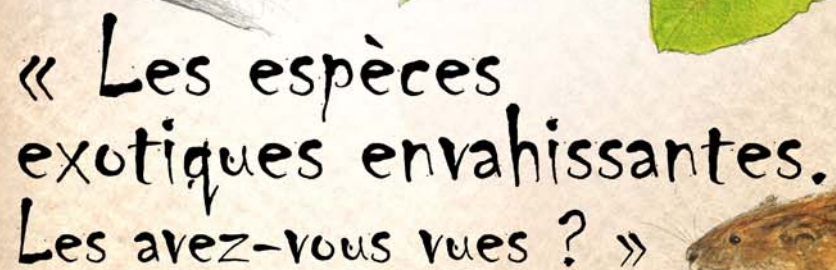 « Les espèces
exotiques envahissantes.
Les avez-vous vues ? »